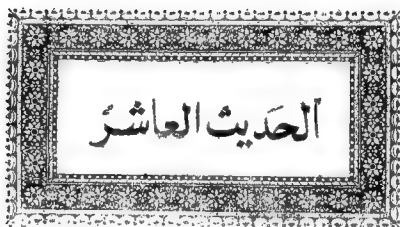 الحَديث العاشرُ